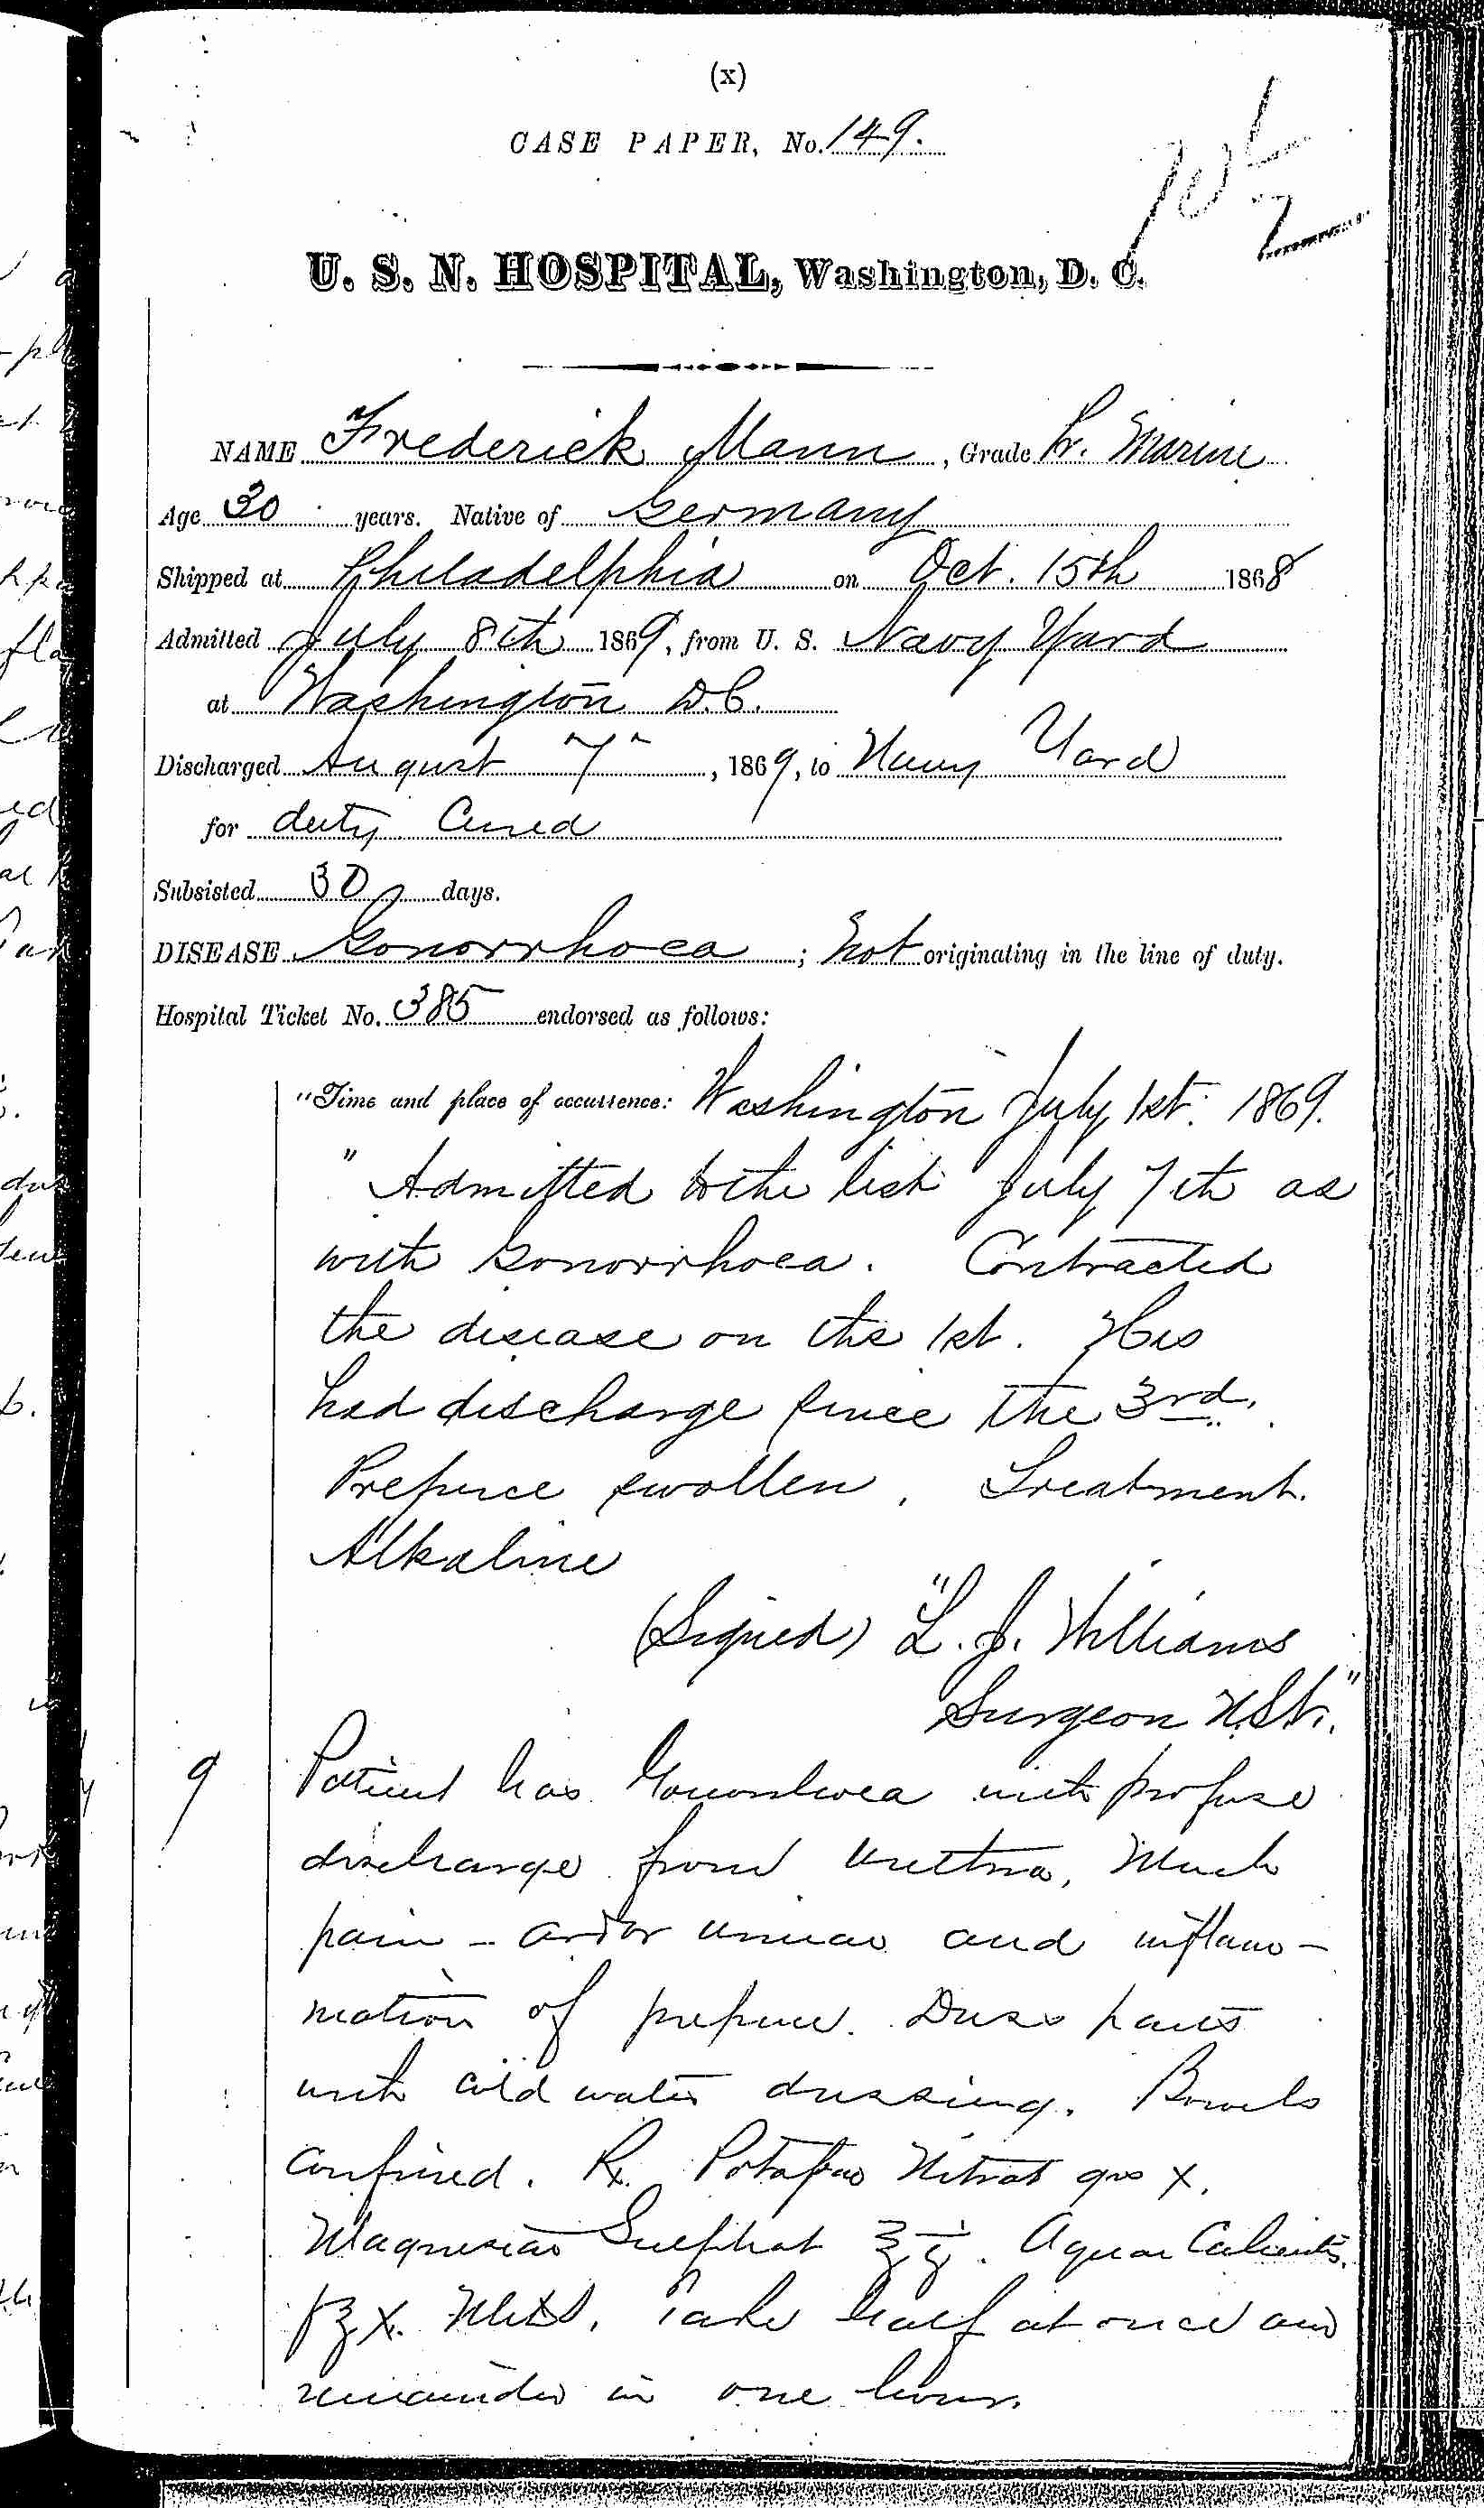 (x)
CASE PAPER, No. 149.
U. S. N. HOSPITAL, Washington, D. C.
NAME Frederick Mann, Grade Pr. Marine
Age 30 years. Native of Germany
Shipped at Philadelphia on Oct. 15th 1868
Admitted July 8th 1869, from U. S. Navy Yard
at Washington D.C.
Discharged August "7", 1869, to Navy Yard
for duty Cured
Subsisted 30 days.
DISEASE Gonorrhoea; not originating in the line of duty.
Hospital Ticket No. 385 endorsed as follows:
"Time and place of occurrence: Washington July 1st. 1869.
"Admitted to the list July 7th as
with Gonorrhoea. Contracted
the disease on the 1st. Has
had discharge since the 3rd.
Prepuce swollen. Treatment.
Alkaline
(Signed) "L. J. Williams
Surgeon U.S.N."
9 Patient has Gonorrhoea with profuse
discharge from urethra, Much
pain - ardor urinae and inflam-
mation of prepuce. Dress parts
with cold water dressing. Bowels
confined. Rx. Potassae Nitrat grs x.
Magnesiae Sulphat ℥j. Aquae Calientis
f℥x. Take half at once and
remainder in one hour.